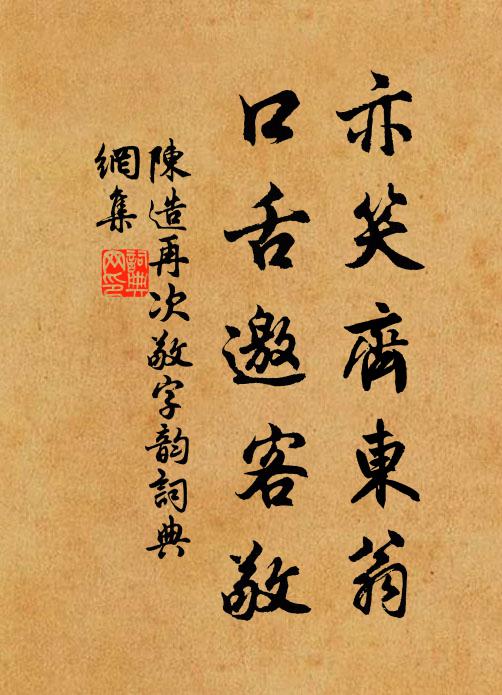 亦笑齊東翁
口舌邀客敬
陳造再次敬字韵詞典
網集
詞典
网印